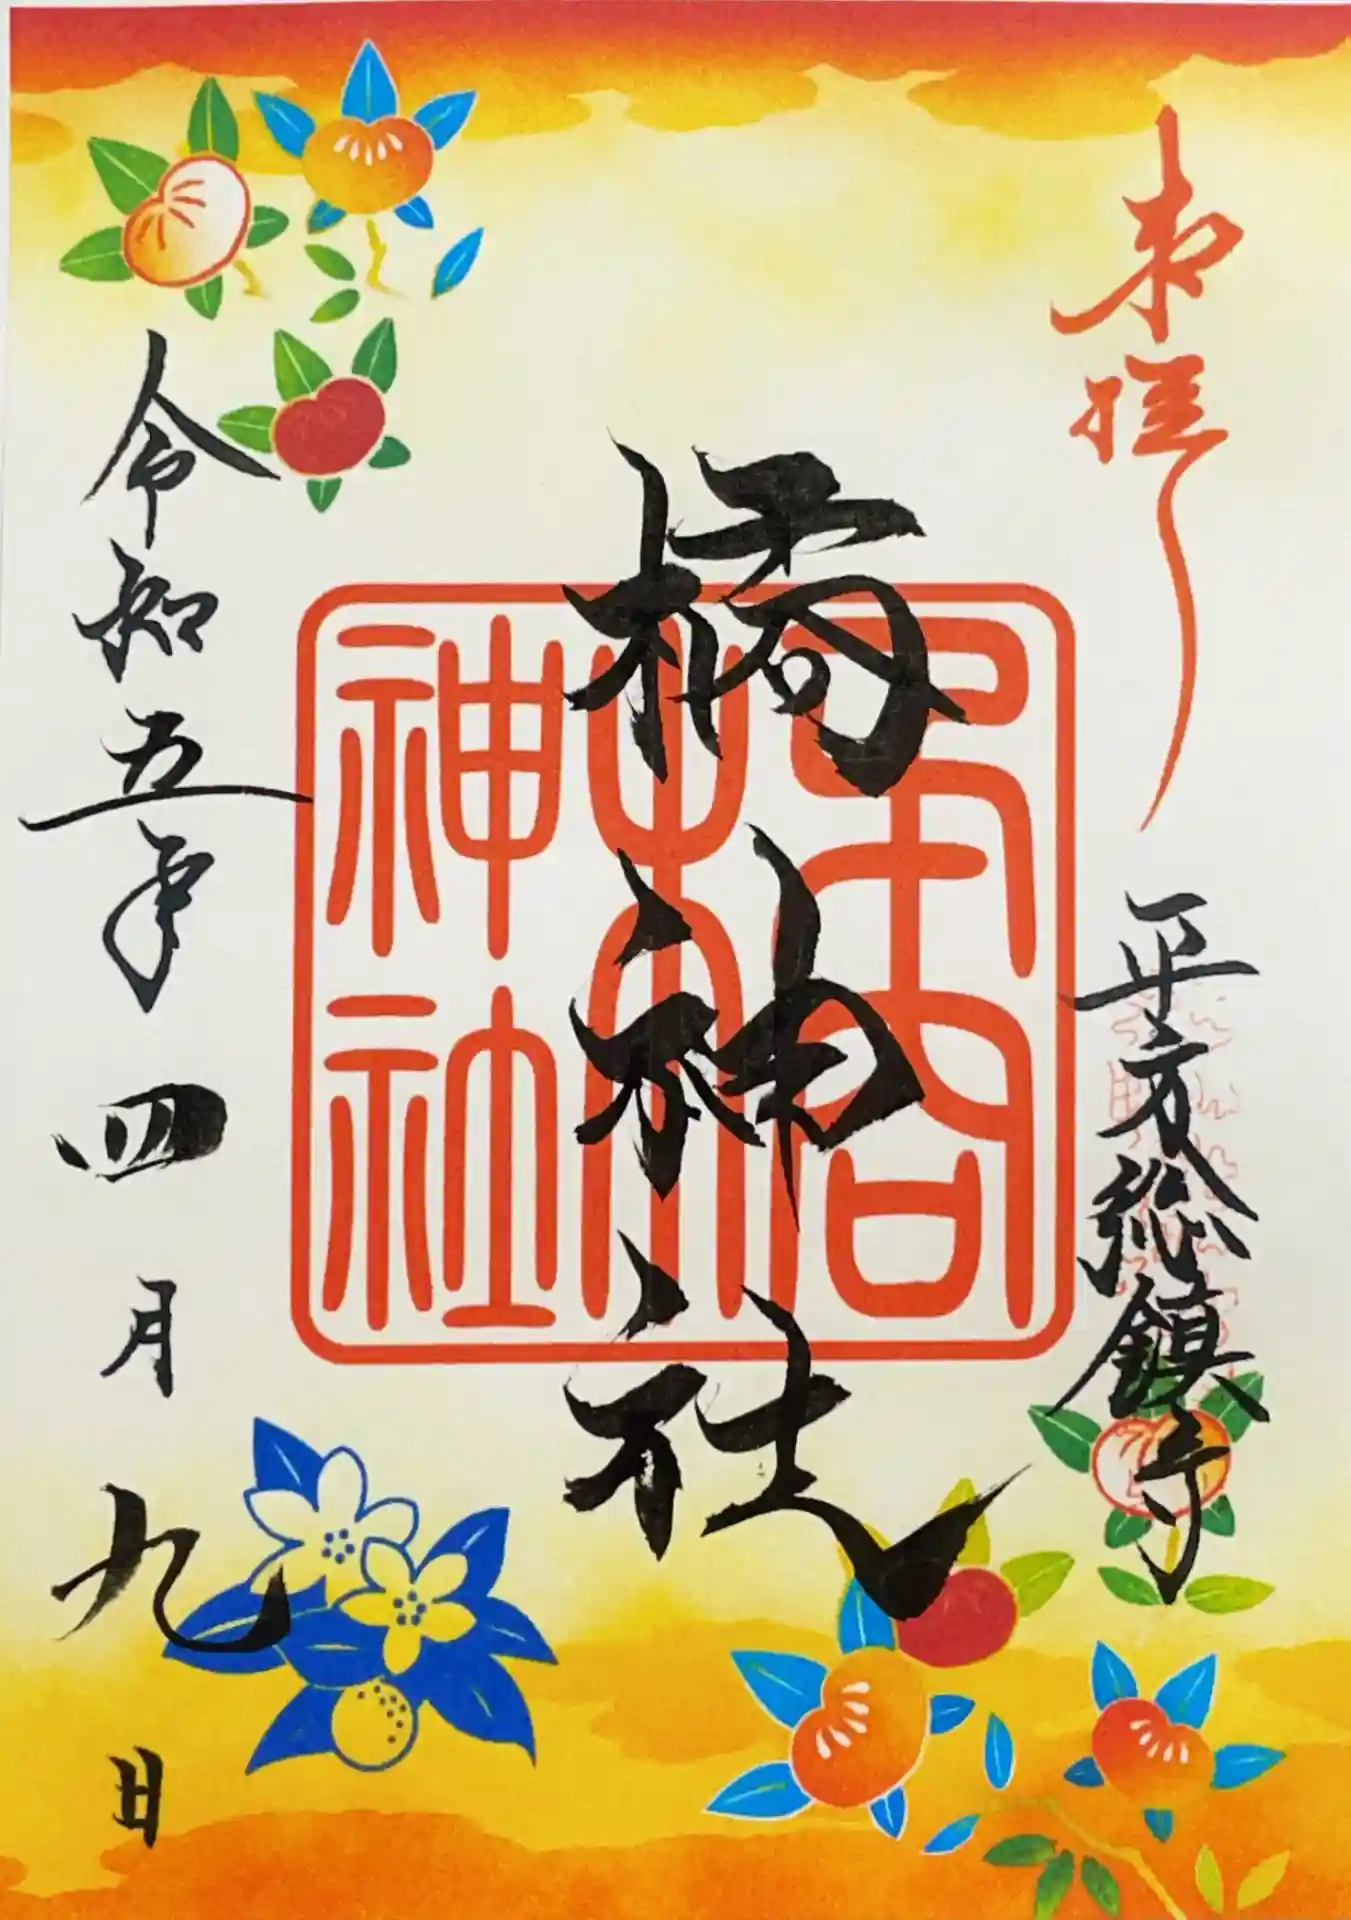 奉拝
平方総鎮守
橘神社
橘神社
令和五年四月九日